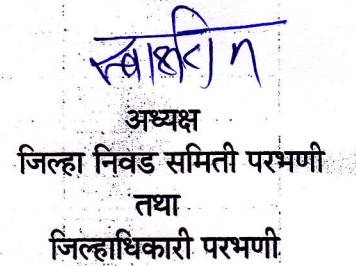 स्वाक्षरीत
अध्यक्ष
जिल्हा निवड समिती परभणी
तथा
जिल्हाधिकारी परभणी